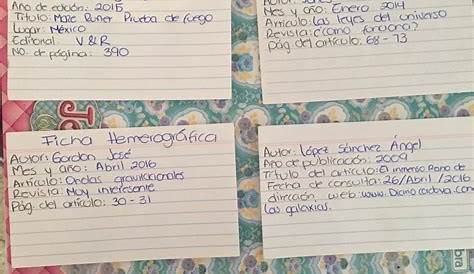 Año de edición: 2015
Título: Maze Runer Prueba de fuego
Lugar: México
Editorial: V & R
NO. de página: 390
Mes y año: Enero 2014
Artículo: Las leyes del universo
Revista: ¿Cómo funciona?
Pág del artículo: 68 - 73
Ficha Hemerográfica
Autor: Gordon José
Mes y año: Abril 2016
Artículo: Ondas gravitacionales
Revista: Muy interesante
Pág. del artículo: 30 - 31
Autor: López Sánchez Ángel
Año de publicación: 2009
Título del artículo: El inmenso Pano de
Fecha de consulta: 26/Abril/2016
dirección web: www.
las galaxias.